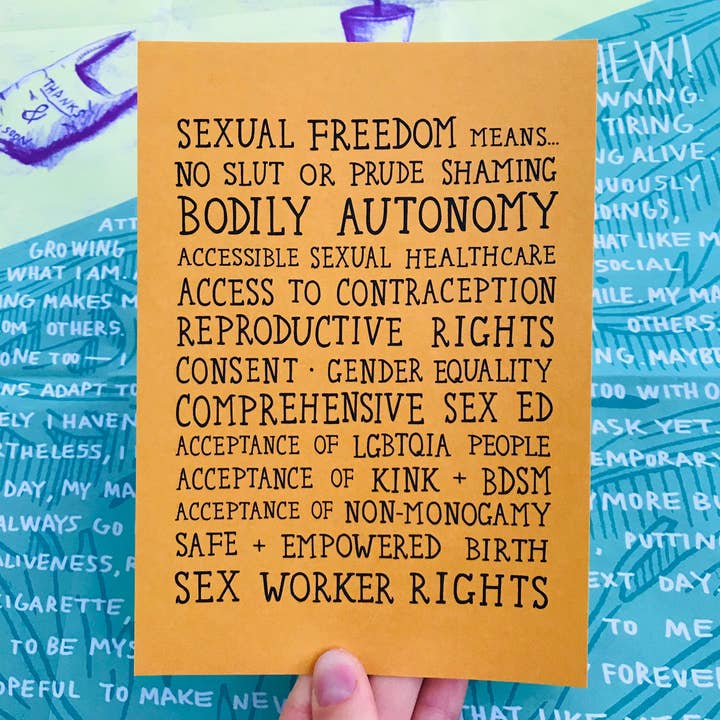 SEXUAL FREEDOM MEANS...
NO SLUT OR PRUDE SHAMING
BODILY AUTONOMY
ACCESSIBLE SEXUAL HEALTHCARE
ACCESS TO CONTRACEPTION
REPRODUCTIVE RIGHTS
CONSENT · GENDER EQUALITY
COMPREHENSIVE SEX ED
ACCEPTANCE OF LGBTQIA PEOPLE
ACCEPTANCE OF KINK + BDSM
ACCEPTANCE OF NON-MONOGAMY
SAFE + EMPOWERED BIRTH
SEX WORKER RIGHTS
THANKS
&
SOON
GROWING
WHAT I AM.
MAKES
OTHERS.
TOO — I
ADAPT TO
I HAVEN
I
DAY, MY
ALWAYS GO
ALIVENESS,
CIGARETTE,
TO BE
TO MAKE
ALIVE.
THAT LIKE
SOCIAL
MY
OTHERS
MAYBE
TOO WITH
ASK YET
TEMPORARY
MORE
PUTTING
NEXT DAY,
TO ME
FOREVER